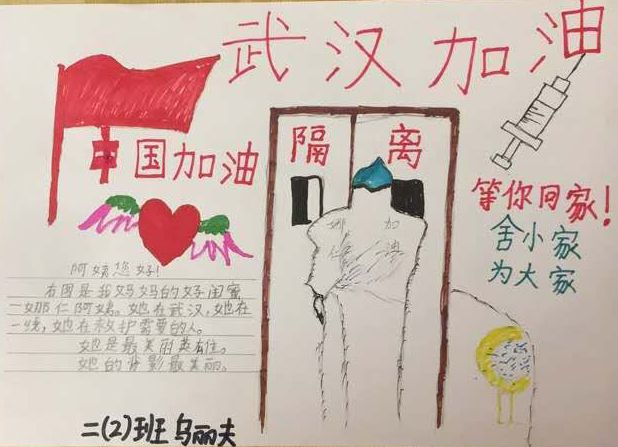 武汉加油
中国加油
隔 离
等你回家!
舍小家
为大家
娜 加
仁 油
阿姨您好!
右图是我妈妈的好闺蜜
—娜仁阿姨。她在武汉,她在
一线,她在救护需要的人。
她是最美丽英雄。
她的背影最美丽。
二(2)班 乌丽夫